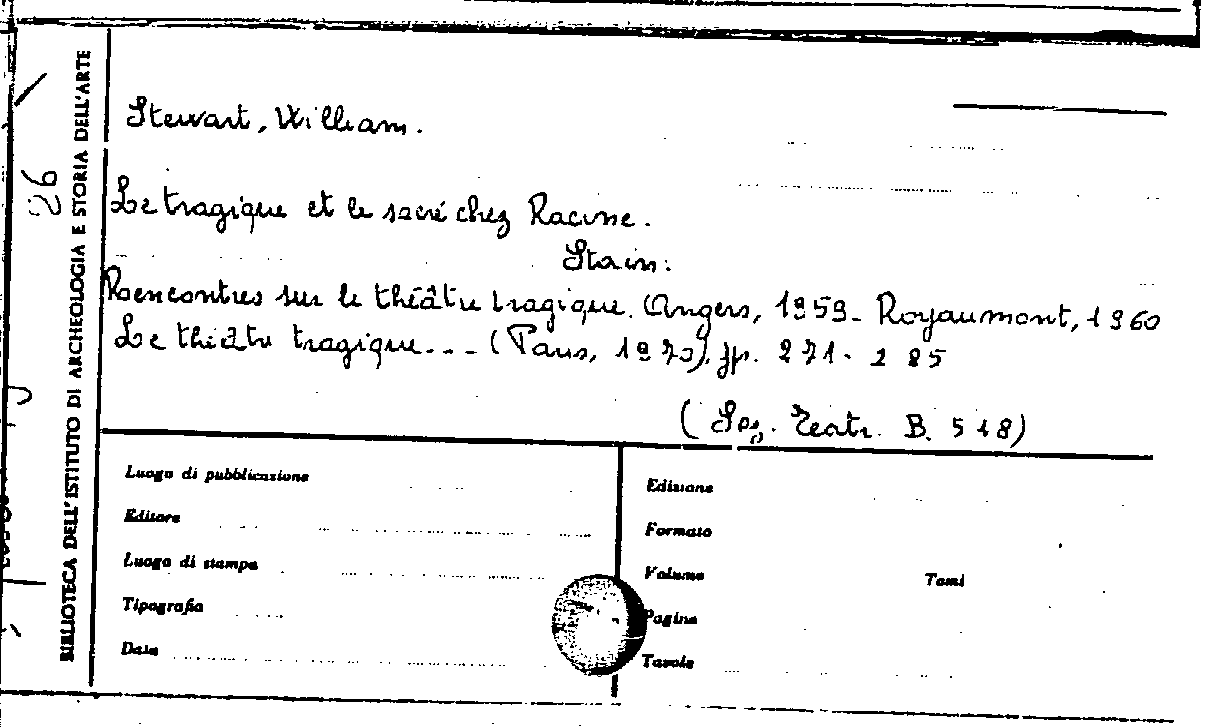 Stewart, William.
Le tragique et le sacré chez Racine.
Sta in:
Rencontres sur le théâtre tragique. Angers, 1959 - Royaumont, 1960
Le théâtre tragique... (Paris, 1970), pp. 271-285
(Teatr. B. 518)
BIBLIOTECA DELL'ISTITUTO DI ARCHEOLOGIA E STORIA DELL'ARTE
Luogo di pubblicazione
Editore
Luogo di stampa
Tipografia
Data
Edizione
Formato
Volume Tomi
Pagine
Tavole